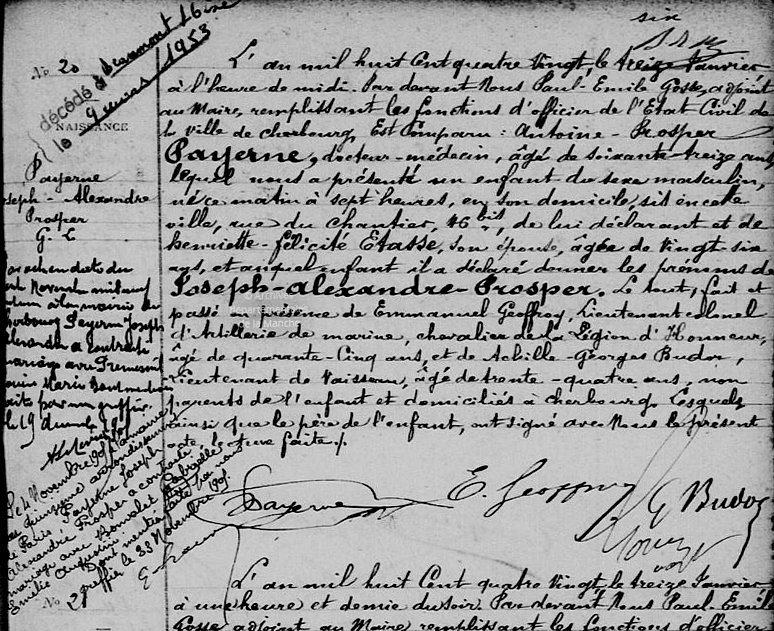 No 20
NAISSANCE
décédé à Beaumont 16 ise
le 9 mars 1953
Payerne
Joseph - Alexandre
Prosper
G. L
six
L'an mil huit Cent quatre vingt, le treize Janvier
à l'heure de midi. Par devant Nous Paul-Emile Gosse, adjoint
au Maire, remplissant les fonctions d'officier de l'Etat Civil de
la ville de Cherbourg, Est Comparu : Antoine - Prosper
Payerne, docteur-médecin, âgé de soixante-treize ans,
lequel nous a présenté un enfant du sexe masculin,
né ce matin à sept heures, en son domicile, sis en cette
ville, rue du Chantier, 46 bis, de lui déclarant et de
henriette-félicité Etasse, son épouse, âgée de vingt-six
ans, et auquel enfant il a déclaré donner les prénoms de
Joseph-Alexandre-Prosper. Le tout, fait et
passé en présence de Emmanuel Geoffroy, Lieutenant colonel
d'Artillerie de marine, chevalier de la Légion d'Honneur,
âgé de quarante-Cinq ans, et de Achille-Georges Budor,
Lieutenant de Vaisseau, âgé de trente-quatre ans, non
parents de l'enfant et domiciliés à Cherbourg. Lesquels
ainsi que le père de l'enfant, ont signé avec Nous le présent
acte, lecture faite.
© Archives
départementales
de la Manche
Payerne
E. Geoffroy
G Budor
Cherbourg Payerne Joseph
Alexandre a contracté
mariage avec
le 19
Le 4 Novembre 1905 à la mairie
du quinzième arrondissement
de Paris, Payerne Joseph
Alexandre Prosper a contracté
mariage avec Bonnalet Gabrielle
Emilie Augustine
Dont mention faite par nous
greffier le 23 Novembre 1905
No 21
L'an mil huit Cent quatre vingt, le treize Janvier
à une heure et demie du soir. Par devant Nous Paul-Emile
Gosse adjoint au Maire remplissant les fonctions d'officier